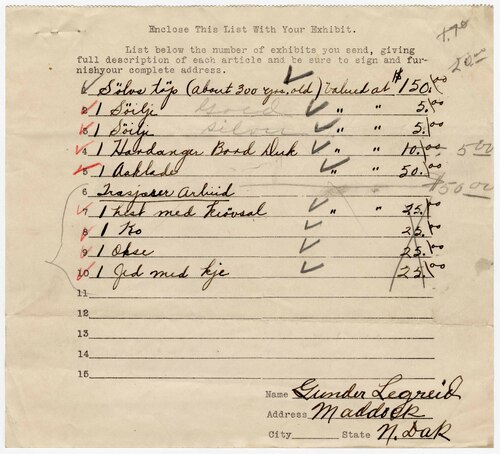 Enclose This List With Your Exhibit.
1.70
20.00
List below the number of exhibits you send, giving
full description of each article and be sure to sign and fur-
nishyour complete address.
1 Sölve Köp (about 300 yrs. old) Valued at $150.00
2 1 Söilje Gold " " 5.00
3 1 Söilje Silver " " 5.00
4 1 Hardanger Bord Duk " " 10.00 5.00
5 1 Aaklade " " 50.00 $50.00
6 Træskjærer Arbeid
7 1 hest med " " 25.00
8 1 Ko 25.00
9 1 Okse 25.00
10 1 Jed med kje 25.00
11
12
13
14
15
Name Gunder Legreid
Address Maddock
City State N. Dak